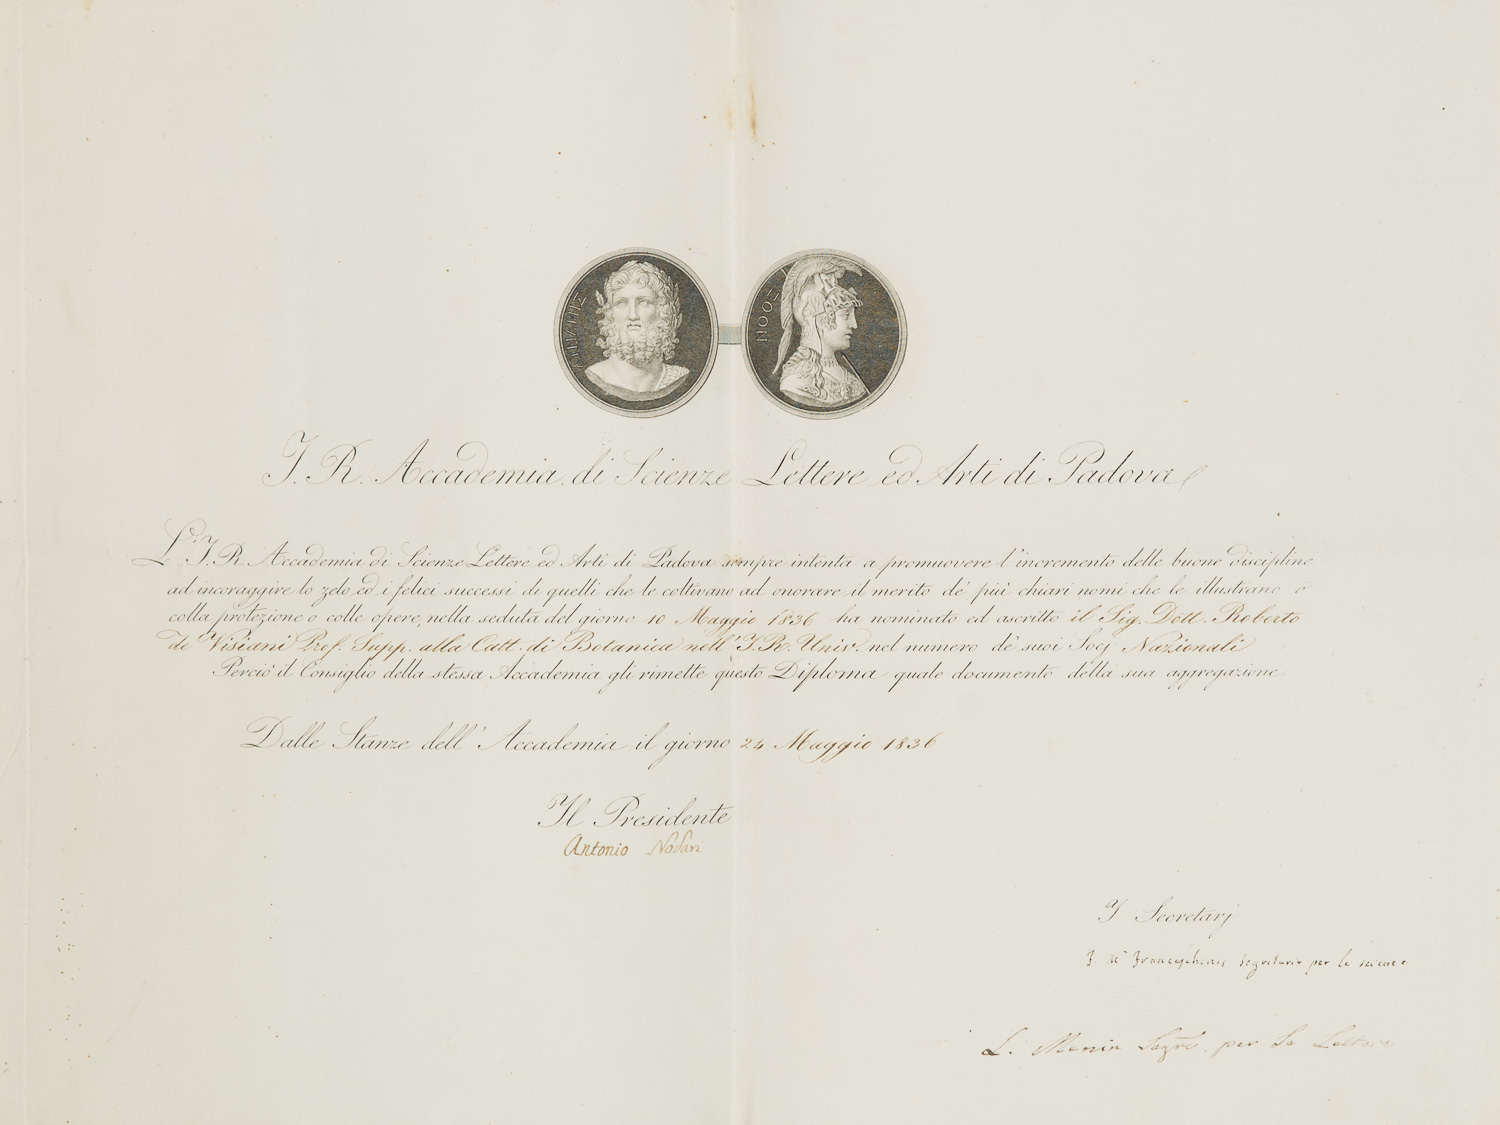 NOOΣ
I. R. Accademia di Scienze Lettere ed Arti di Padova
L'I. R. Accademia di Scienze Lettere ed Arti di Padova sempre intenta a promuovere l'incremento delle buone discipline
ad incoraggire lo zelo ed i felici successi di quelli che le coltivano ad onorare il merito de' più chiari nomi che le illustrano o
colla protezione o colle opere, nella seduta del giorno 10 Maggio 1836 ha nominato ed ascritto il Sig. Dott. Roberto
de Visiani Prof. Supp. alla Catt. di Botanica nell' I. R. Univ. nel numero de' suoi Socj Nazionali
Perciò il Consiglio della stessa Accademia gli rimette questo Diploma quale documento della sua aggregazione
Dalle Stanze dell' Accademia il giorno 24 Maggio 1836
Il Presidente
Antonio Nodari
I Secretarj
F. M. Franceschinis Segretario per le scienze
L. Menin Segr. per le Lettere